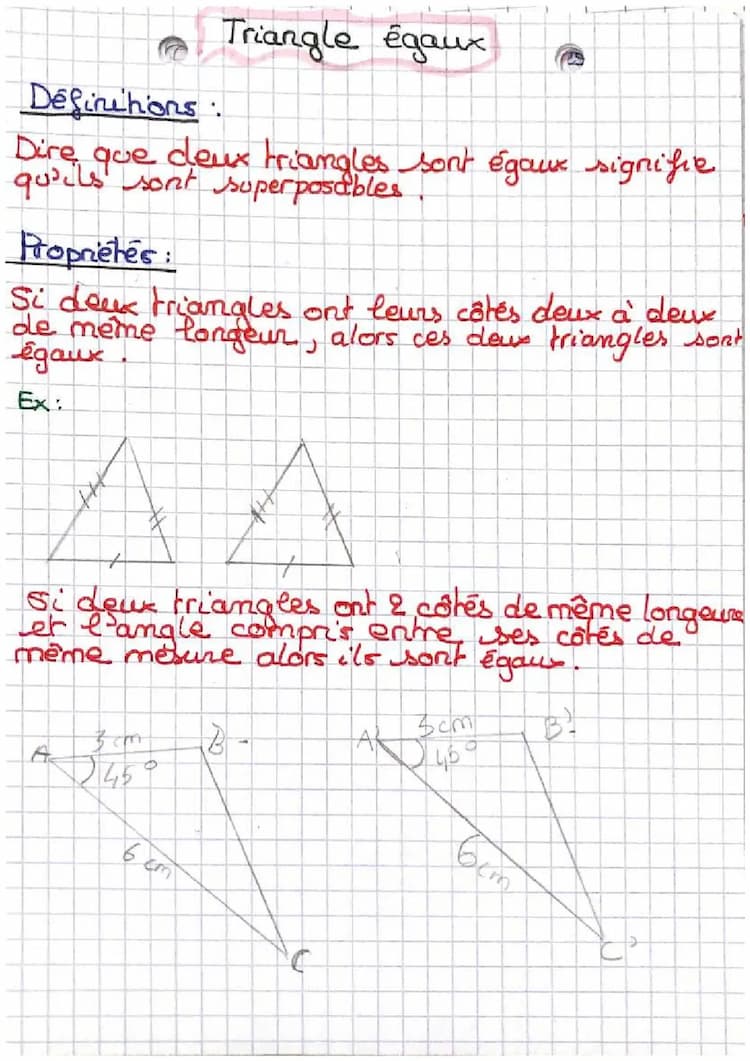 Triangle égaux
Définitions :
Dire que deux triangles sont égaux signifie
qu'ils sont superposables.
Propriétés :
Si deux triangles ont leurs côtés deux à deux
de même longeur, alors ces deux triangles sont
égaux.
Ex :
Si deux triangles ont 2 côtés de même longeure
et l'angle compris entre ses côtés de
même mesure alors ils sont égaux.
A 3 cm B
45°
6 cm
C
A' 3 cm B'
45°
6 cm
C'